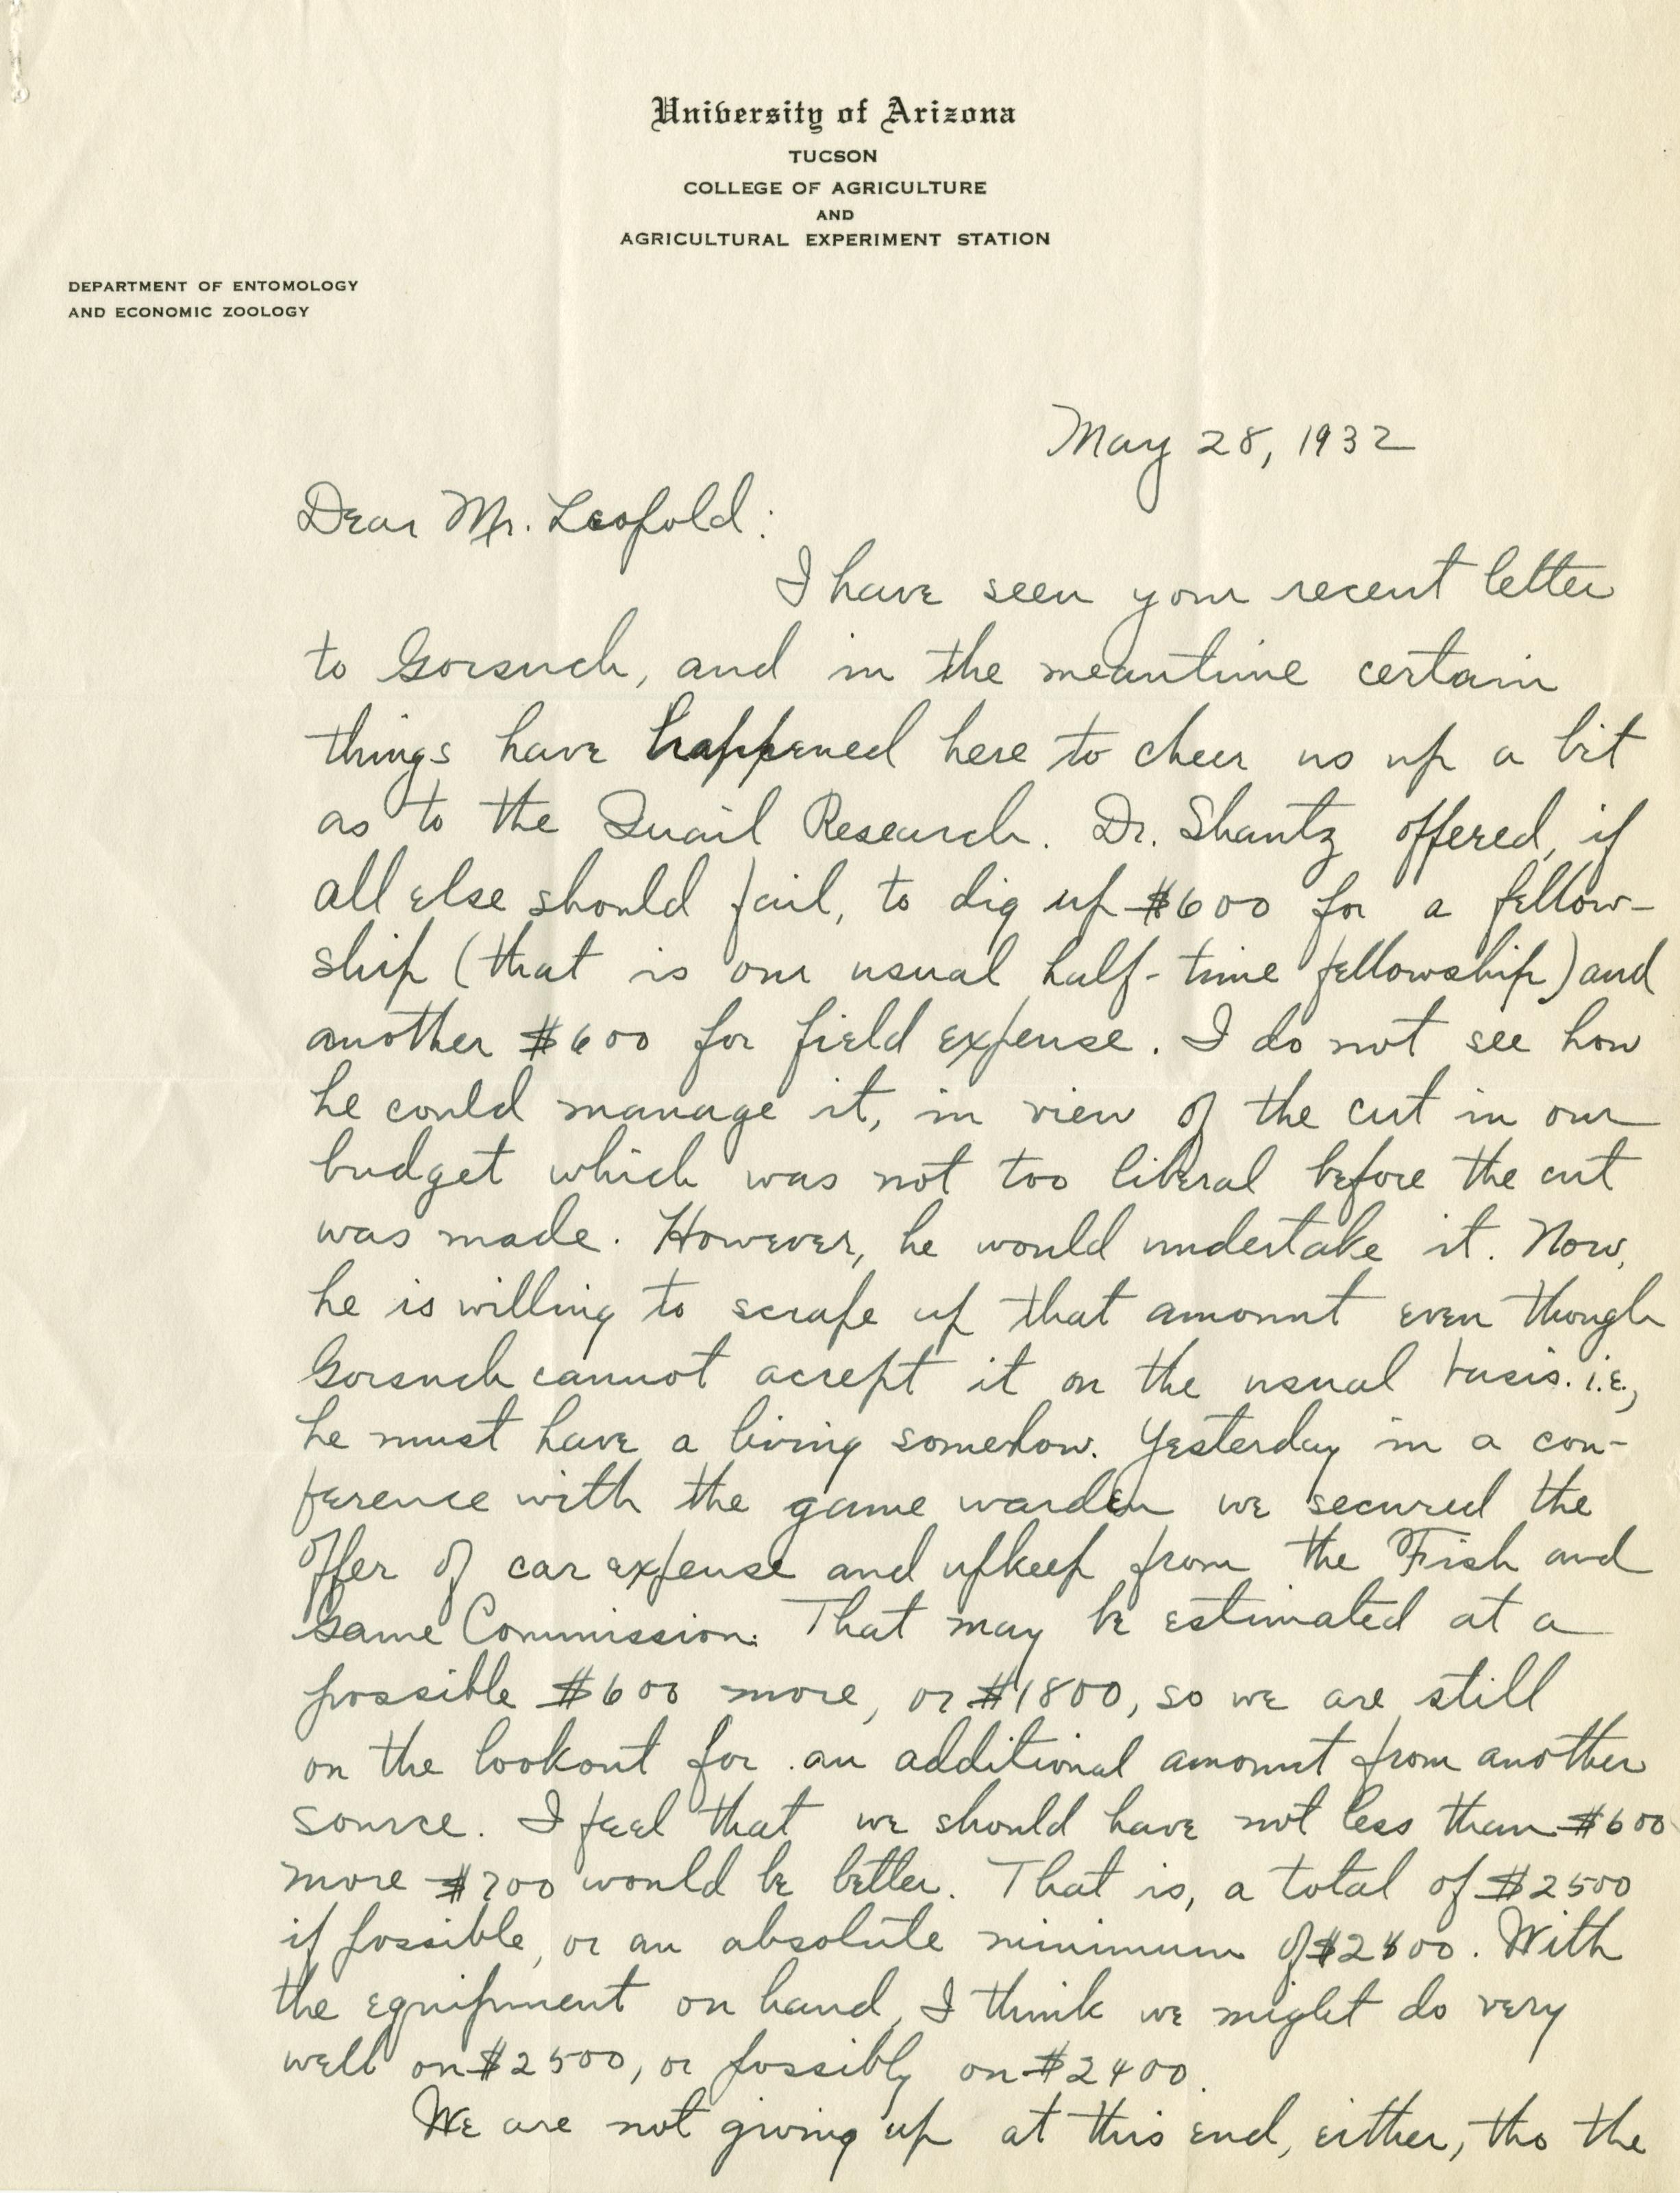 University of Arizona
TUCSON
COLLEGE OF AGRICULTURE
AND
AGRICULTURAL EXPERIMENT STATION
DEPARTMENT OF ENTOMOLOGY
AND ECONOMIC ZOOLOGY
May 28, 1932
Dear Mr. Leopold:
I have seen your recent letter
to Gorsuch, and in the meantime certain
things have happened here to cheer us up a bit
as to the Quail Research. Dr. Shantz offered, if
all else should fail, to dig up $600 for a fellow-
ship (that is our usual half-time fellowship) and
another $600 for field expense. I do not see how
he could manage it, in view of the cut in our
budget which was not too liberal before the cut
was made. However, he would undertake it. Now,
he is willing to scrape up that amount even though
Gorsuch cannot accept it on the usual basis. i.e.,
he must have a living somehow. Yesterday in a con-
ference with the game warden we secured the
offer of car expense and upkeep from the Fish and
Game Commission. That may be estimated at a
possible $600 more, or $1800, so we are still
on the lookout for an additional amount from another
source. I feel that we should have not less than $600
more $700 would be better. That is, a total of $2500
if possible, or an absolute minimum of $2400. With
the equipment on hand, I think we might do very
well on $2500, or possibly on $2400.
We are not giving up at this end, either, tho the